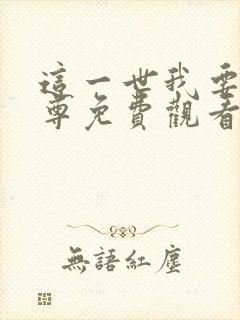 這一世我要
尊免費觀看
無語紅塵